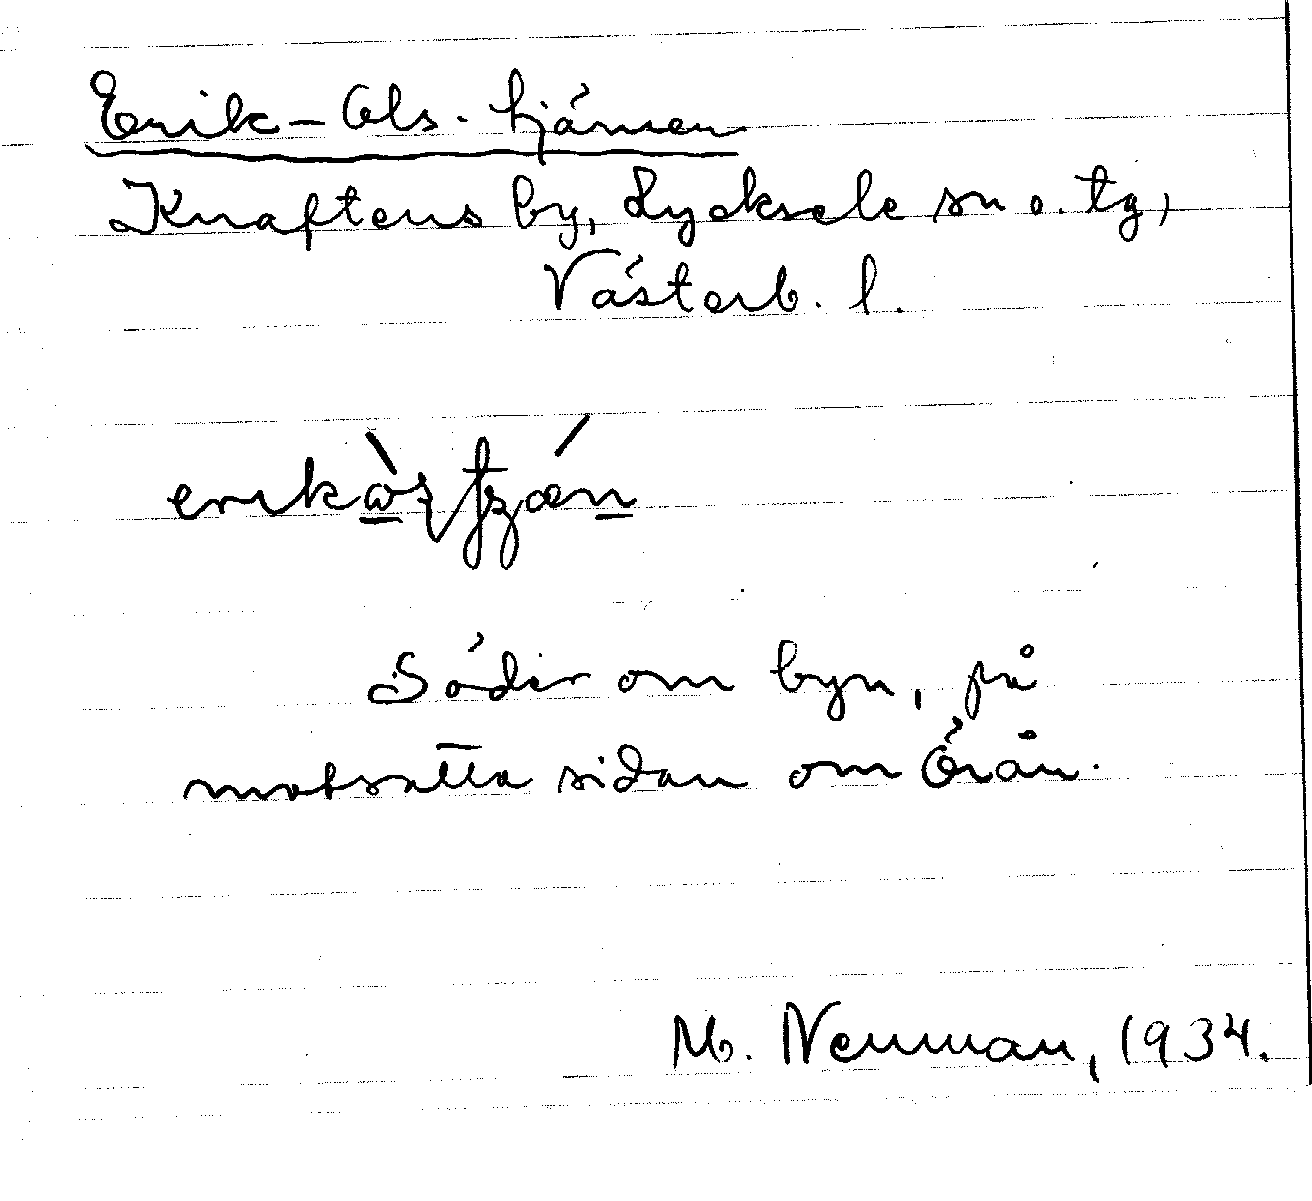 Erik-Ols-tjärnen
Knaftens by, Lycksele sn o. tg,
Västerb. l.
Söder om byn, på
motsatta sidan om Örån.
M. Neuman, 1934.